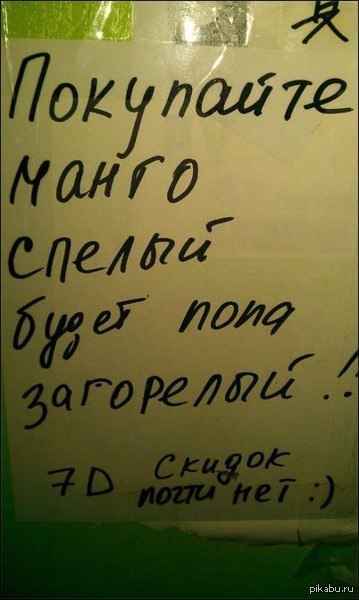 Покупайте
манго
спелый
будет попа
загорелый!!
7D скидок
почти нет :)
pikabu.ru